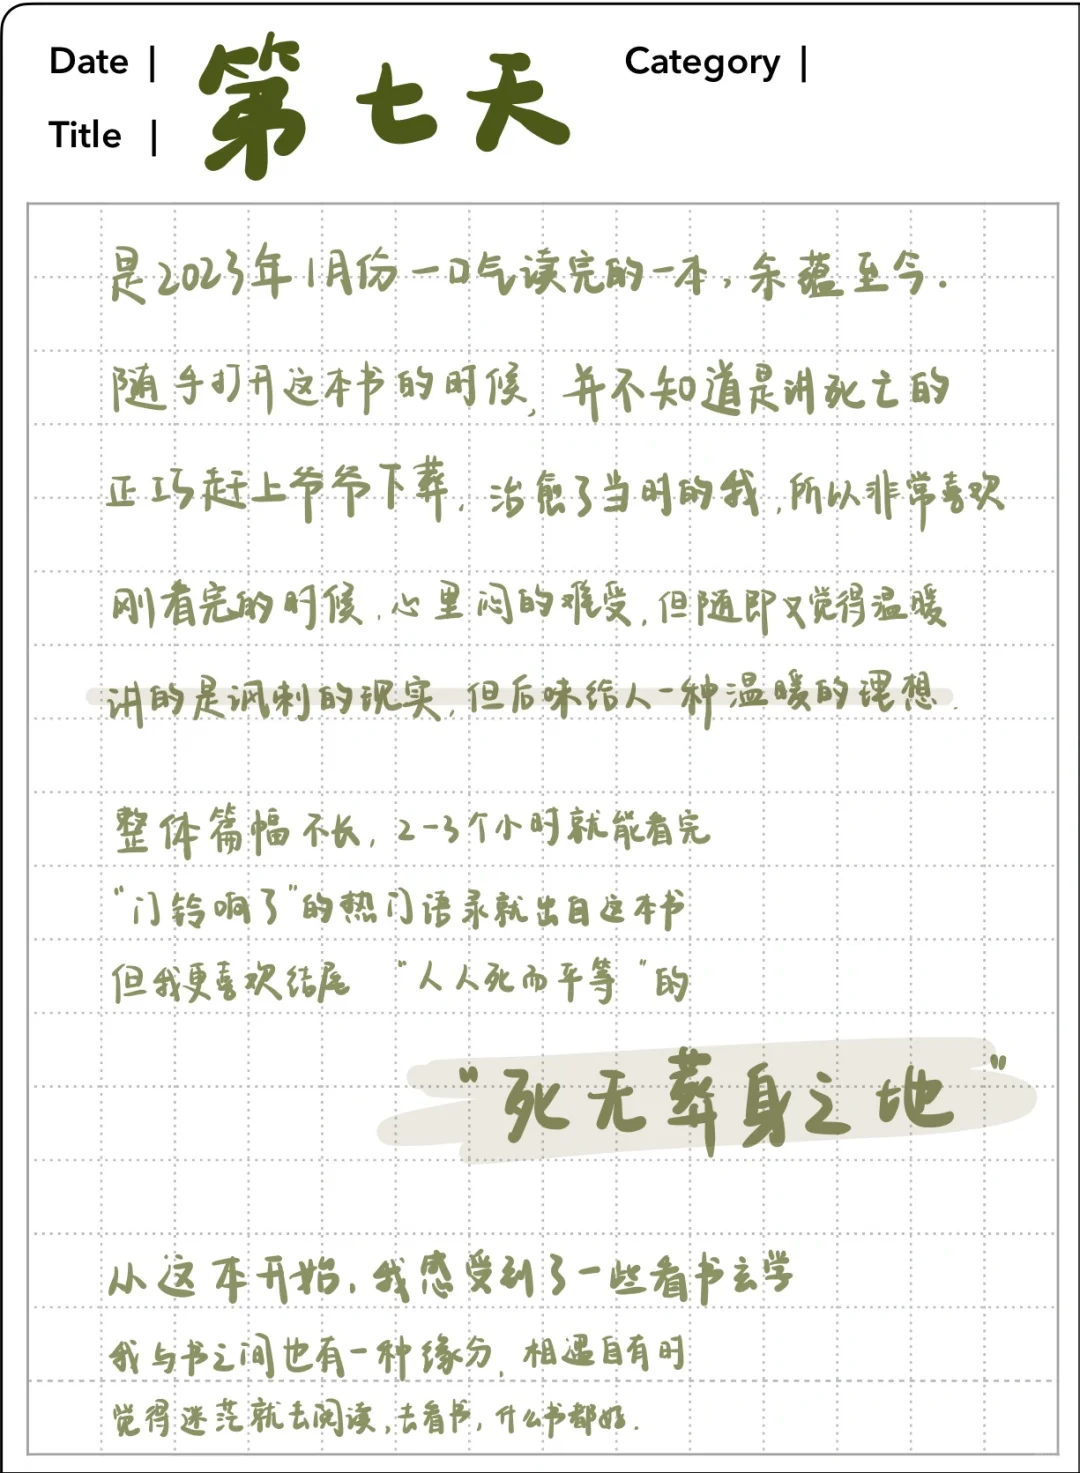 Date | 第七天 Category |
Title |
是2023年1月份一口气读完的一本，余蕴至今.
随手打开这本书的时候，并不知道是讲死亡的
正巧赶上爷爷下葬，治愈了当时的我，所以非常喜欢
刚看完的时候，心里闷的难受，但随即又觉得温暖
讲的是讽刺的现实，但后味给人一种温暖的理想.
整体篇幅不长，2-3个小时就能看完
“门铃响了”的热门语录就出自这本书
但我更喜欢结尾 “人人死而平等”的
“死无葬身之地”
从这本开始，我感受到了一些看书玄学
我与书之间也有一种缘分，相遇自有时
觉得迷茫就去阅读，去看书，什么书都好.